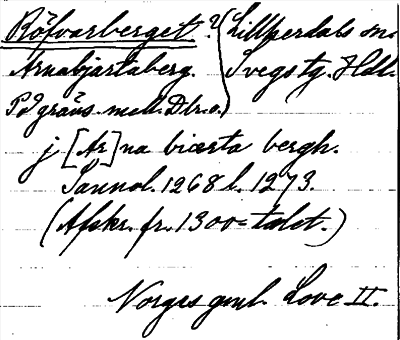 Röfvarberget? Lillherdals sn.
Arnabjartaberg. Svegs tg. Hdl.
På gräns mell. Dlr. o.
j [Ar]na biærta bergh.
Sannol. 1268 l. 1273.
(Afskr. fr. 1300-talet.)
Norges gml. Love II.